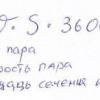 · S · 360
пара
рость пара
щадь сечения